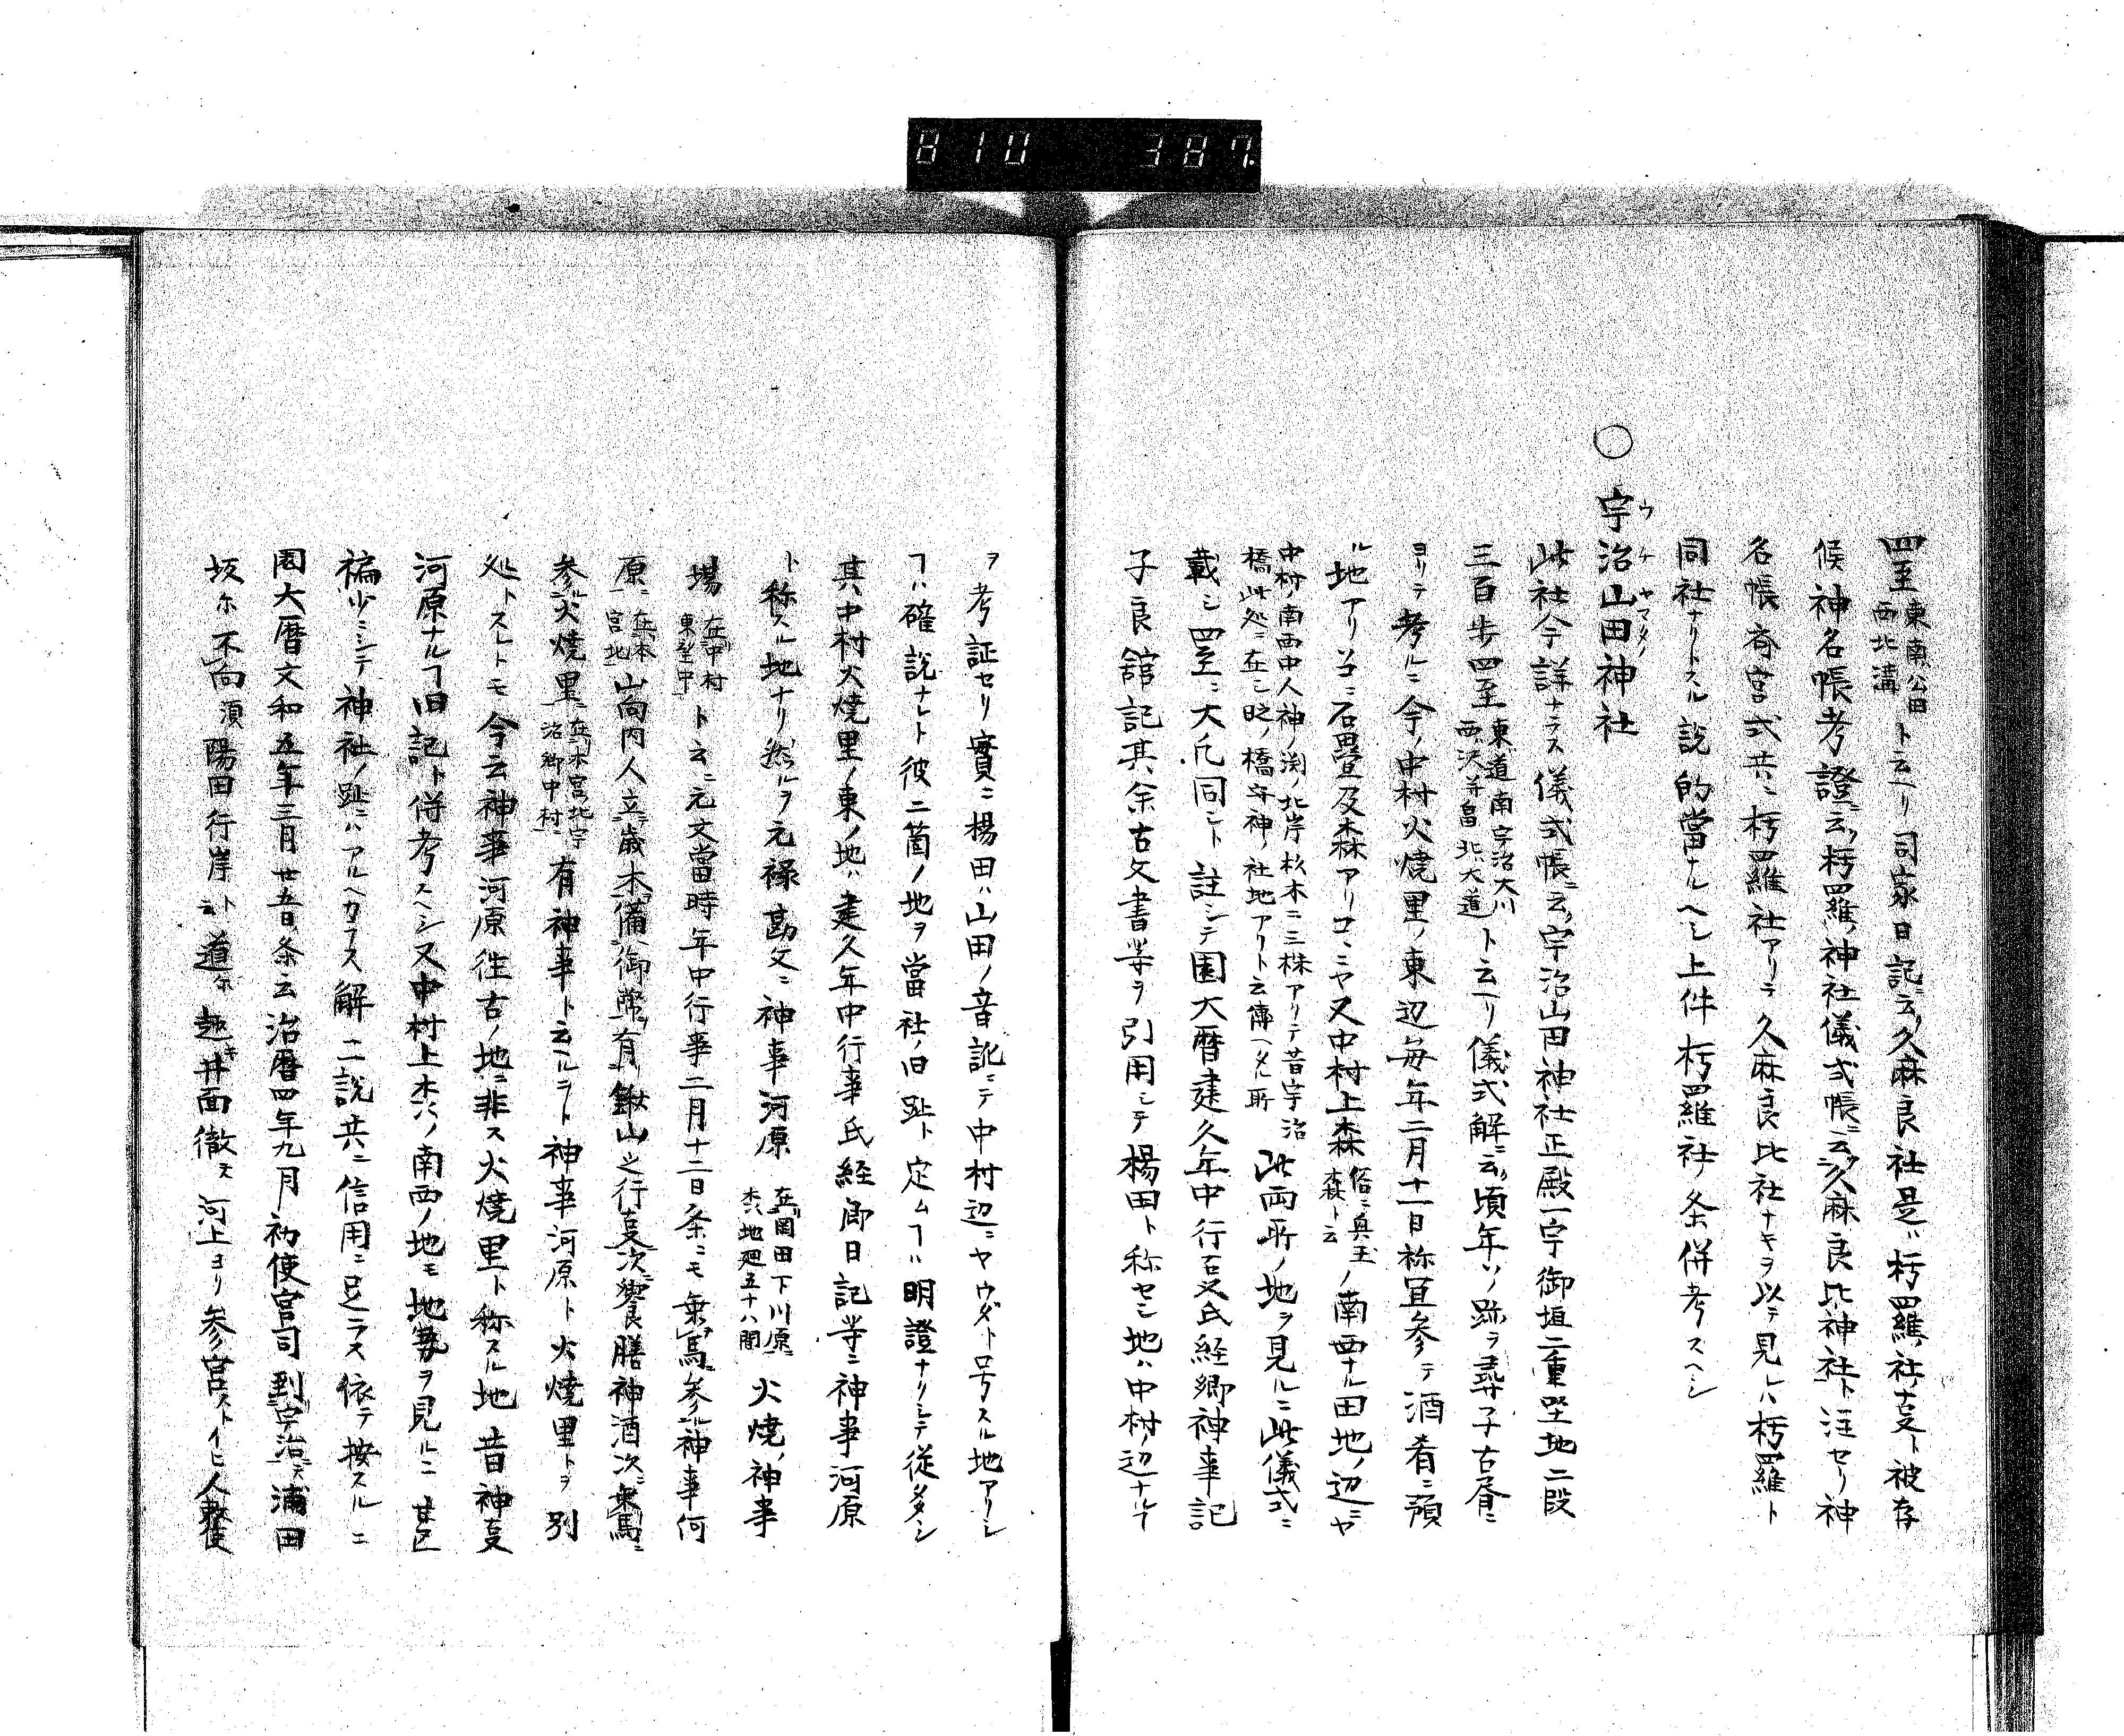 810 387
四至東南公田西北溝ト云ヘリ同家日記ニ云ク久麻良社是ハ朽羅ノ社ノ支ト被存
候神名帳考證ニ云ク朽羅ノ神社儀式帳ニ云ク久麻良比神社ト注セリ神
名帳斎宮式共ニ朽羅社アリテ久麻良比社ナキヲ以テ見レハ朽羅ト
同社ナリトスル説的當ナルヘシ上件朽羅社ノ条併考スヘシ
○宇治山田神社
ウチヤマダノ
此社今詳ナラス儀式帳ニ云ク宇治山田神社正殿一宇御垣二重坐地二段
三百歩四至東道南宇治大川西沢并畠北大道ト云ヘリ儀式解ニ云ク頃年ソノ跡ヲ尋ヌ子古老ニ
ヨリテ考ルニ今ノ中村火焼里ノ東辺毎年二月十一日祢宜参テ酒肴ニ預
ル地アリソコニ石畳及森アリココニヤ又中村上森俗ニ興玉森ト云ノ南西ナル田地ノ辺ニヤ
中村ノ南西中人神ノ渕ノ北岸杉木二三株アリテ昔宇治
橋此処ニ在シ時ノ橋守神ノ社地アリト云傳ヘタル所此両所ノ地ヲ見ルニ此儀式ニ
載シ四至ニ大凡同シト註シテ園大暦建久年中行支氏経卿神事記
子良舘記其余古文書等ヲ引用シテ楊田ト称セシ地ハ中村ノ辺ナルヿ
ヲ考証セリ實ニ楊田ハ山田ノ音訛ニテ中村辺ニヤウダト号スル地アリシ
ヿハ確説ナレト彼二箇ノ地ヲ當社ノ旧趾ト定ムヿハ明證ナリシテ従ヒタシ
其中村火焼里ノ東ノ地ハ建久年中行事氏経卿日記等ニ神事河原
ト称スル地ナリ然ルヲ元禄勘文ニ神事河原在岡田下川原ニ木ハ地廻五十八間火焼ノ神事
場在中村東堂中ト云ニ元文當時年中行事二月十二日条ニモ乗馬参神事河
原ニ在本宮地山向内人立歳木備御幣有鍬山之行支次饗膳神酒次乗馬ニ
参火焼里在本宮北宇治郷中村ニ有神事ト云ヘルヲト神事河原ト火焼里トヲ別
処トスレトモ今云神事河原往古ノ地ニ非ス火焼里ト称スル地昔神支
河原ナルヿ旧記ト併考スヘシ又中村上森ノ南西ノ地モ地勢ヲ見ルニ甚
褊少ニシテ神社ノ趾ニハアルヘカラス解二説共ニ信用ニ足ラス依テ按スルニ
園大暦文和五年三月廿五日条云治暦四年九月初使宮司到宇治ニテ浦田
坂尓不向須陽田行岸ト云道尓趣キ井面徹ス河上ヨリ参宮ストイヒ人轂